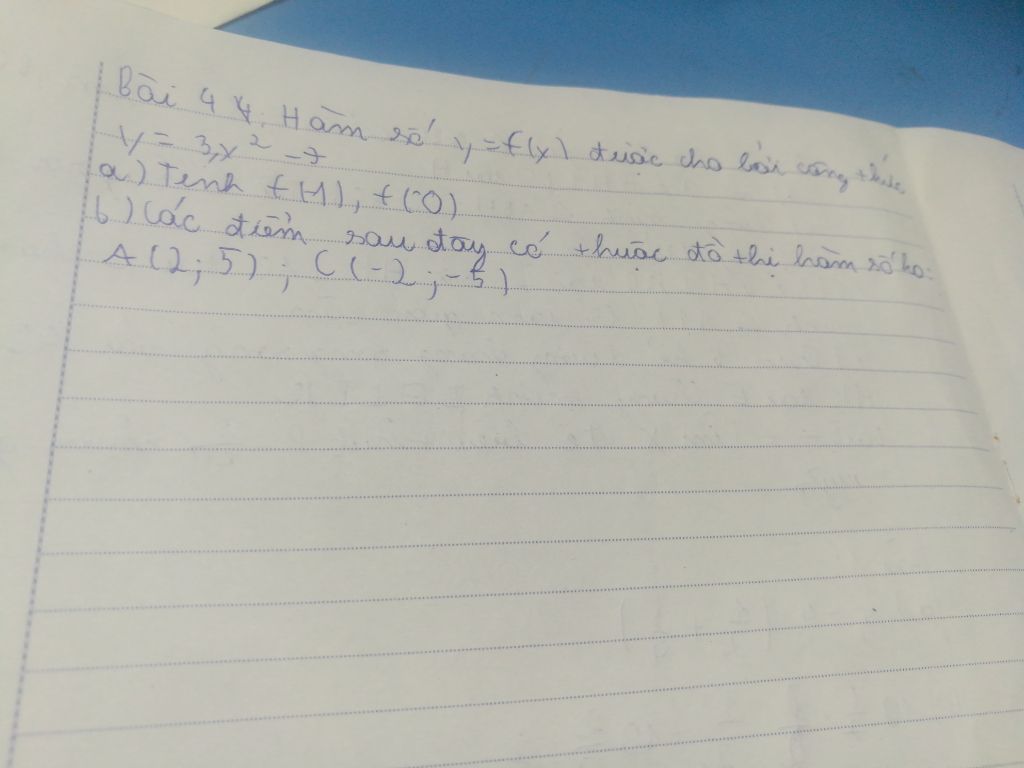 Bài 44. Hàm số y = f(x) được cho bởi công thức
y = 3x² - 7
a) Tính f(-1), f(0)
b) Các điểm sau đây có thuộc đồ thị hàm số ko:
A(2; 5); C(-2; -5)